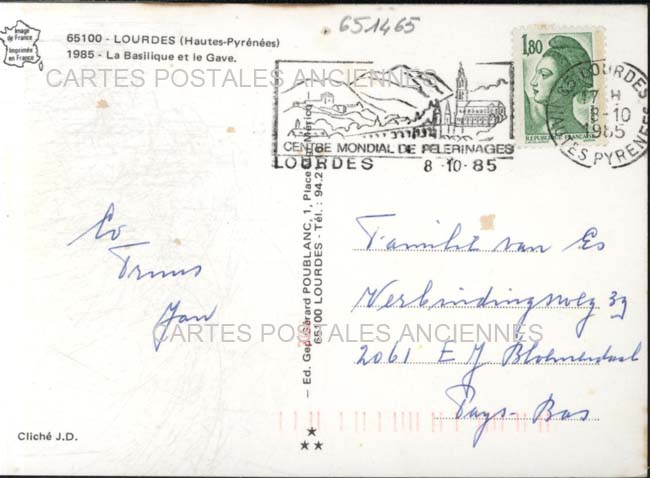 651465
Image
de France
Imprimée
en France
65100 - LOURDES (Hautes-Pyrénées)
1985 - La Basilique et le Gave.
CARTES POSTALES ANCIENNES
1,80
REPUBLIQUE FRANCAISE
CENTRE MONDIAL DE PELERINAGES
LOURDES 8-10-85
65 LOURDES
17 H
8-10
1985
HTES PYRENEES
Co
Truus
Jan
Familie van Es
Verbindingsweg 39
2061 EJ Bloemendaal
Pays-Bas
CARTES POSTALES ANCIENNES
— Ed. Gep Gérard POUBLANC, 1, Place
65100 LOURDES - Tél. : 94.2
Cliché J.D.